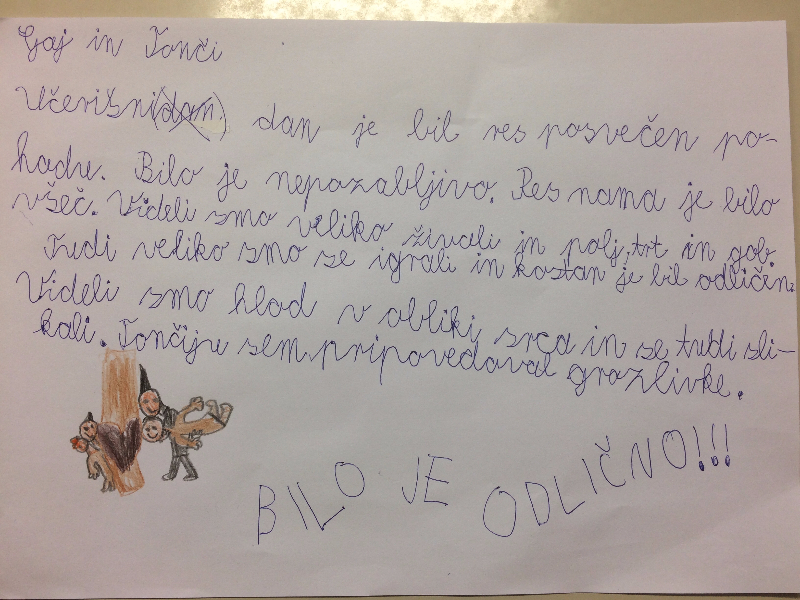 Gaj in Tonči
Učerišni(dan) dan je bil res posvečen po-
hodu. Bilo je nepozabljivo. Res nama je bilo
všeč. Videli smo veliko živali in polj, trt in gob.
Tudi veliko smo se igrali in kostan je bil odličen.
Videli smo hlod v obliki srca in se tudi sli-
kali. Tončiju sem pripovedoval grozlivke.
BILO JE ODLIČNO!!!